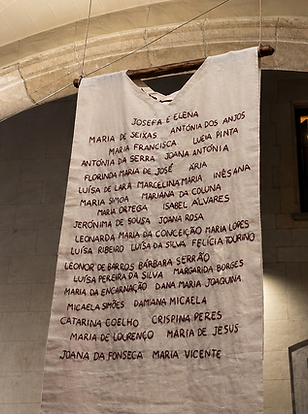 JOSEFA E ELENA
MARIA DE SEIXAS ANTÓNIA DOS ANJOS
MARIA FRANCISCA LUCIA PINTA
ANTÓNIA DA SERRA JOANA ANTÓNIA
FLORINDA MARIA DE JOSÉ ÁRIA
LUÍSA DE LARA MARCELINA MARIA INÊS ANA
MARIA SIMOA MARIANA DA COLUNA
MARIA ORTEGA ISABEL ALVARES
JERÓNIMA DE SOUSA JOANA ROSA
LEONARDA MARIA DA CONCEIÇÃO MARIA LOPES
LUÍSA RIBEIRO LUÍSA DA SILVA FELÍCIA TOURINO
LEONOR DE BARROS BÁRBARA SERRÃO
LUÍSA PEREIRA DA SILVA MARGARIDA BORGES
MARIA DA ENCARNAÇÃO DANA MARIA JOAQUINA
MICAELA SIMÕES DAMIANA MICAELA
CATARINA COELHO CRISPINA PERES
MARIA DE LOURENÇO MARIA DE JESUS
JOANA DA FONSECA MARIA VICENTE